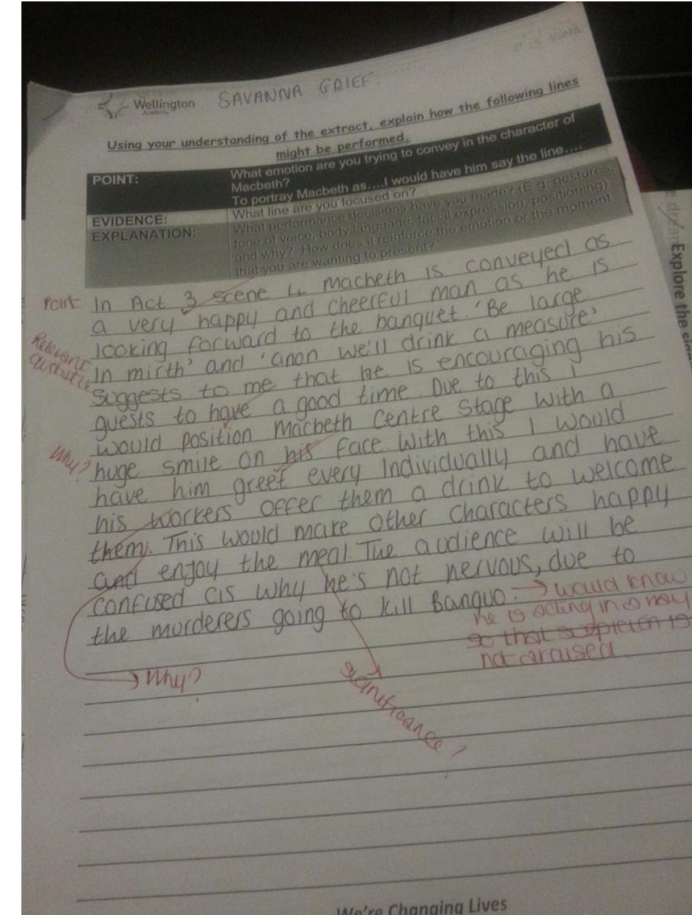 Wellington
Academy
SAVANNA GRIEF.
Using your understanding of the extract, explain how the following lines
might be performed.
POINT:
What emotion are you trying to convey in the character of
Macbeth?
To portray Macbeth as....I would have him say the line....
EVIDENCE:
What line are you focused on?
EXPLANATION:
What performance decisions have you made? (E.g. gestures,
tone of voice, body language, facial expression, positioning)
and why? How does it reinforce the emotion or the moment
that you are wanting to present?
Point
In Act 3 scene 4 Macbeth is conveyed as
a very happy and cheerful man as he is
looking forward to the banquet. 'Be large
Relevant
quotations
In mirth' and 'anon we'll drink a measure'
suggests to me that he is encouraging his
guests to have a good time. Due to this I
would position Macbeth Centre Stage with a
Why?
huge smile on his face. With this I would
have him greet every Individually and have
his workers offer them a drink to welcome
them. This would make other characters happy
and enjoy the meal. The audience will be
confused as why he's not nervous, due to
the murderers going to kill Banquo.
→ would know
he is acting in a way
so that suspicion is
not araised
Why?
significance?
Explore the
We're Changing Lives